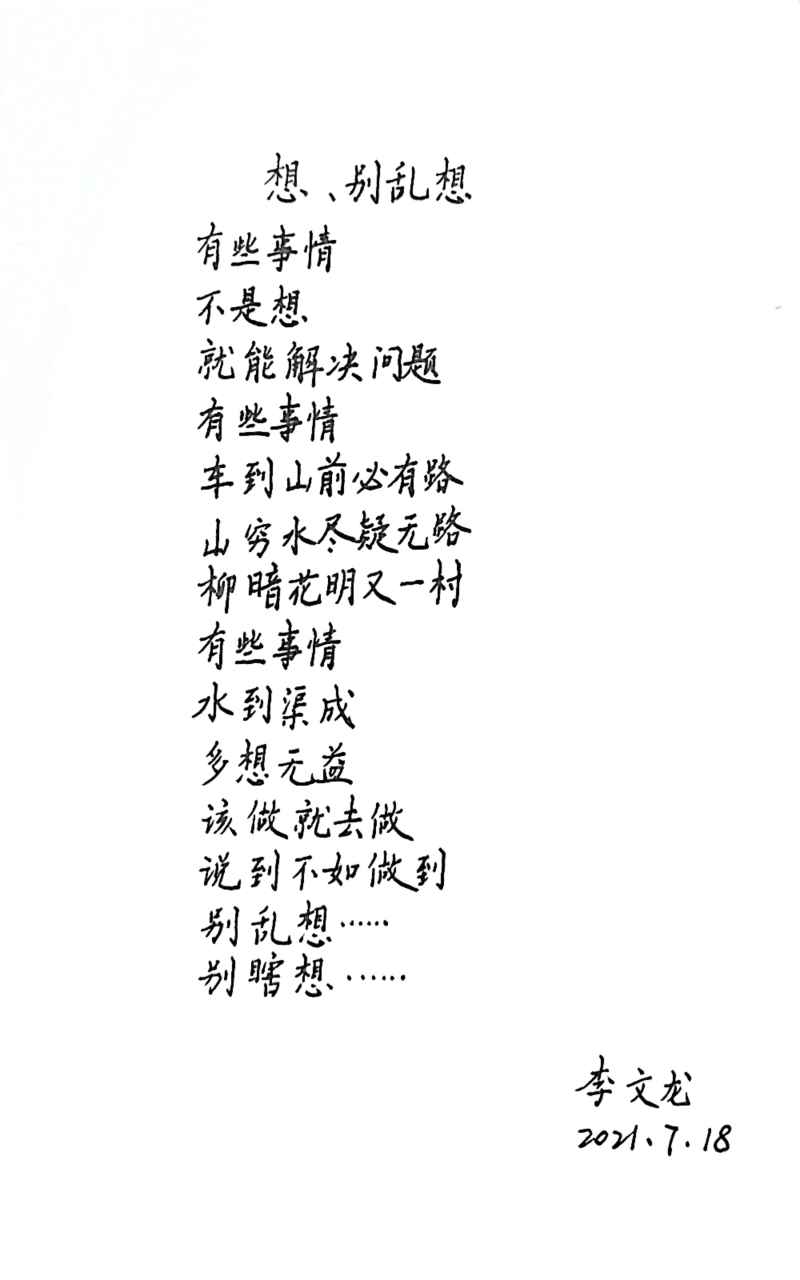 想、别乱想
有些事情
不是想
就能解决问题
有些事情
车到山前必有路
山穷水尽疑无路
柳暗花明又一村
有些事情
水到渠成
多想无益
该做就去做
说到不如做到
别乱想……
别瞎想……
李文龙
2021.7.18